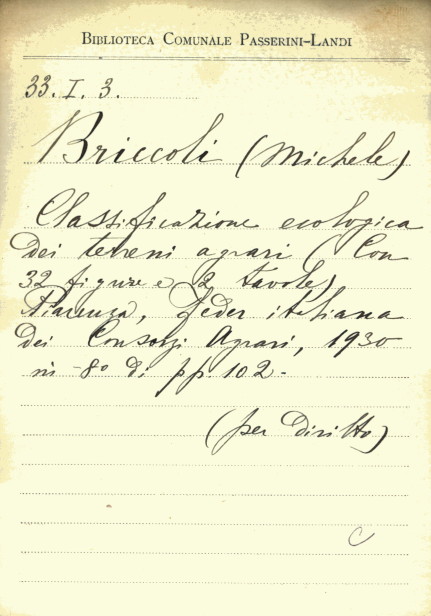 BIBLIOTECA COMUNALE PASSERINI-LANDI
33. I. 3.
Briccoli (Michele)
Classificazione ecologica
dei terreni agrari (Con
32 figure e 2 tavole)
Piacenza, Feder. italiana
dei Consorzi Agrari, 1930
in -8º di pp. 102-
(per diritto)
C